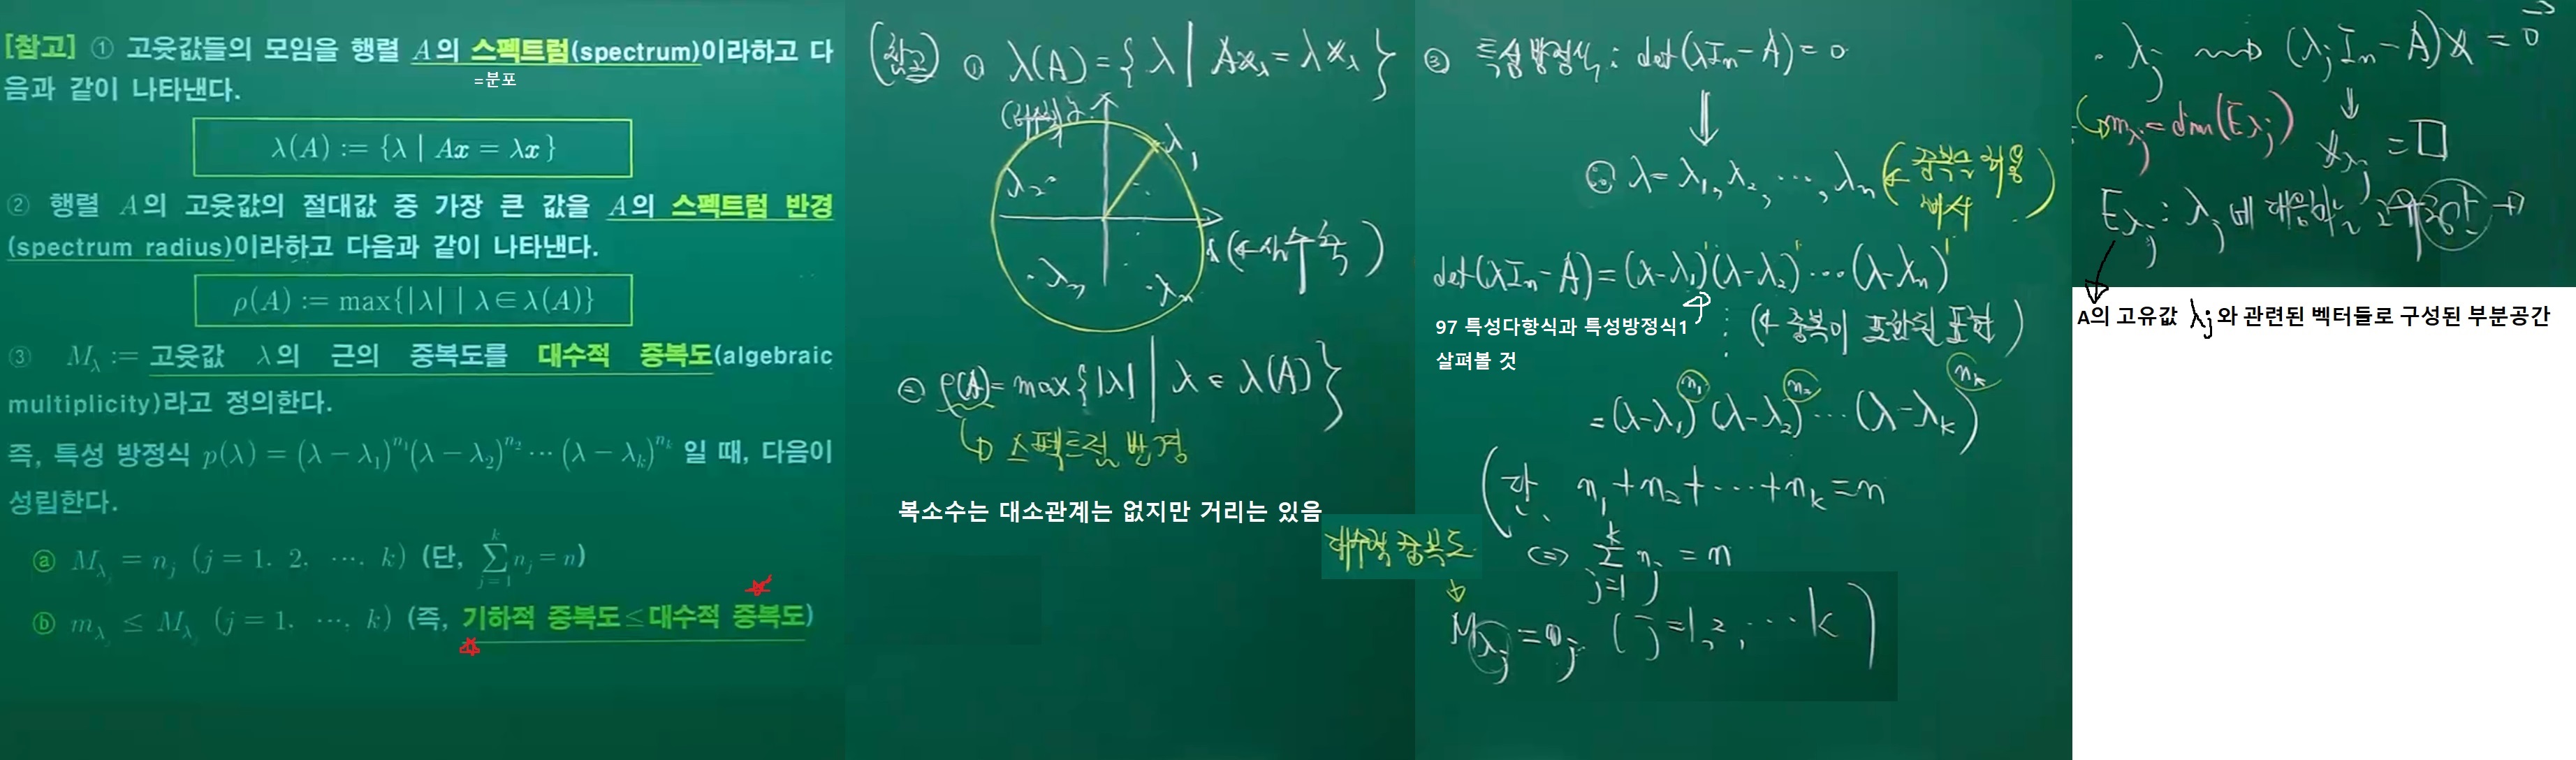 [참고] ① 고윳값들의 모임을 행렬 A의 스펙트럼(spectrum)이라하고 다
=분포
음과 같이 나타낸다.
λ(A) := {λ | Ax = λx}
② 행렬 A의 고윳값의 절대값 중 가장 큰 값을 A의 스펙트럼 반경
(spectrum radius)이라하고 다음과 같이 나타낸다.
ρ(A) := max{|λ| | λ∈λ(A)}
③ M_λ := 고윳값 λ의 근의 중복도를 대수적 중복도(algebraic
multiplicity)라고 정의한다.
즉, 특성 방정식 p(λ) = (λ − λ₁)^{n₁}(λ − λ₂)^{n₂} ⋯ (λ − λ_k)^{n_k} 일 때, 다음이
성립한다.
ⓐ M_λ = n_j (j = 1. 2. ⋯. k) (단, ∑_{j=1}^{k} n_j = n)
ⓑ m_λ ≤ M_λ (j = 1. ⋯. k) (즉, 기하적 중복도 ≤ 대수적 중복도)
(참고) ① λ(A) = {λ | Ax_λ = λx_λ}
λ₁
λ₂
(←실수축)
λ₃
λn
② ρ(A) = max{|λ| | λ ∈ λ(A)}
↳ 스펙트럼 반경
복소수는 대소관계는 없지만 거리는 있음
③ 특성방정식 : det(λIn − A) = 0
⇓
∴ λ = λ₁, λ₂, ⋯, λn (← 중복을 허용
det(λIn − A) = (λ − λ₁)¹(λ − λ₂)¹ ⋯ (λ − λn)¹
97 특성다항식과 특성방정식1
살펴볼 것
(← 중복이 포함된 표현)
= (λ − λ₁)^{n₁} (λ − λ₂)^{n₂} ⋯ (λ − λ_k)^{n_k}
(단, n₁ + n₂ + ⋯ + n_k = n
⇔ ∑_{j=1}^{k} n_j = n
대수적 중복도
M_{λ_j} = n_j (j = 1, 2, ⋯ k)
· λ_j ⇝ (λ_j In − A)x = 0
↳ m_{λ_j} = dim(E_{λ_j})
x_{λ_j} = □
E_{λ_j} : λ_j 에 대응하는 고유공간
A의 고유값 λj와 관련된 벡터들로 구성된 부분공간